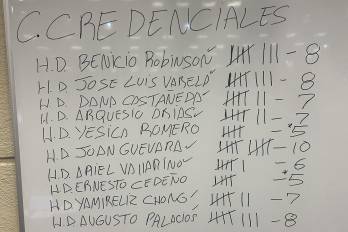 C. CREDENCIALES
H.D. BENICIO Robinson III - 8
H.D. JOSE LUIS VARELA III - 8
H.D. DANA CASTAÑEDA II - 7
H.D. ARQUESIO ARIAS II - 7
H.D. YESICA ROMERO - 5
H.D. JUAN GUEVARA - 10
H.D. ARIEL VALLARINO I - 6
H.D. ERNESTO CEDEÑO - 5
H.D. YAMIRELIZ CHONG II - 7
H.D. AUGUSTO PALACIOS III - 8